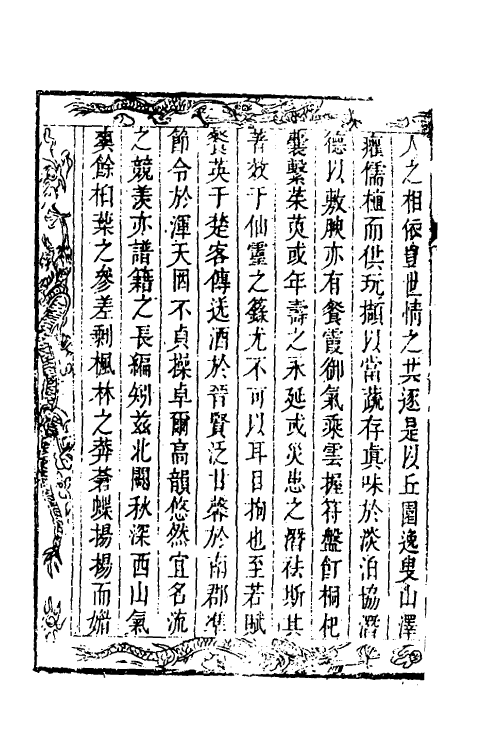 人之相依豈世情之共逐是以丘園逸叟山澤
癯儒植而供玩擷以當蔬存真味於淡泊協潛
德以敷腴亦有餐霞御氣乘雲握符盤飣桐杞
囊繫茱萸或年壽之永延或災患之潛祛斯其
著效于仙靈之籙尤不可以耳目拘也至若賦
餐英于楚客傳送酒於晉賢泛甘馨於南郡準
節令於渾天固不貞操卓爾高韻悠然宜名流
之競羨亦譜籍之長編矧茲北闕秋深西山氣
爽餘柏葉之參差剩楓林之莽蒼蝶揚揚而媚